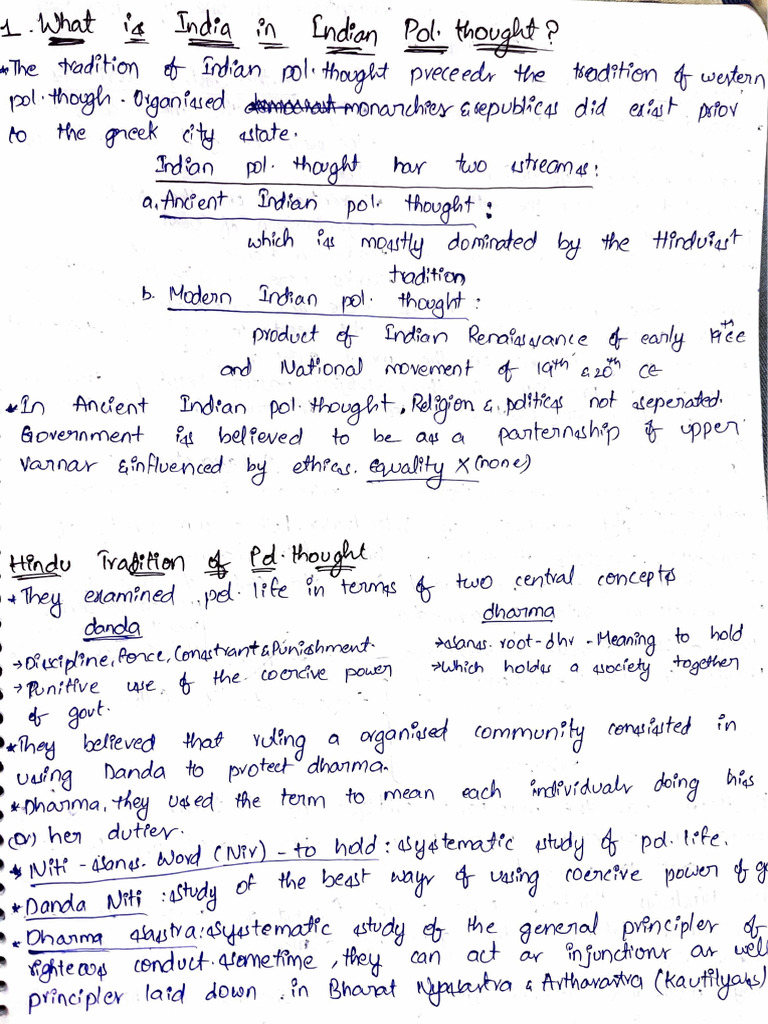 1. What is India in Indian Pol. thought?
*The tradition of Indian pol. thought preceeds the tradition of western
pol. though. Organised monarchies & republics did exist prior
to the greek city state.
Indian pol. thought has two streams:
a. Ancient Indian pol. thought:
which is mostly dominated by the Hinduist
tradition
b. Modern Indian pol. thought:
product of Indian Renaissance of early
and National movement of 19th & 20th CE
*In Ancient Indian pol. thought, Religion & politics not seperated.
Government is believed to be as a parternship of upper
varnas & influenced by ethics. equality X (none)
Hindu Tradition of Pol. thought
*They examined pol. life in terms of two central concepts
danda dharma
→Discipline, Force, Constrant & Punishment. →sans. root-dhr - Meaning to hold
→Punitive use of the coercive power →which holds a society together
of govt.
*They believed that ruling a organised community consisted in
using Danda to protect dharma.
*Dharma, they used the term to mean each individuals doing his
(or) her duties.
*Niti - sans. Word (Niv) - to hold: systematic study of pol. life.
*Danda Niti: study of the best ways of using coercive power of
*Dharma sastra: systematic study of the general principles of
righteous conduct. sometime, they can act as injunctions as well
principles laid down in Bharat & Arthasastra (Kautilyas)